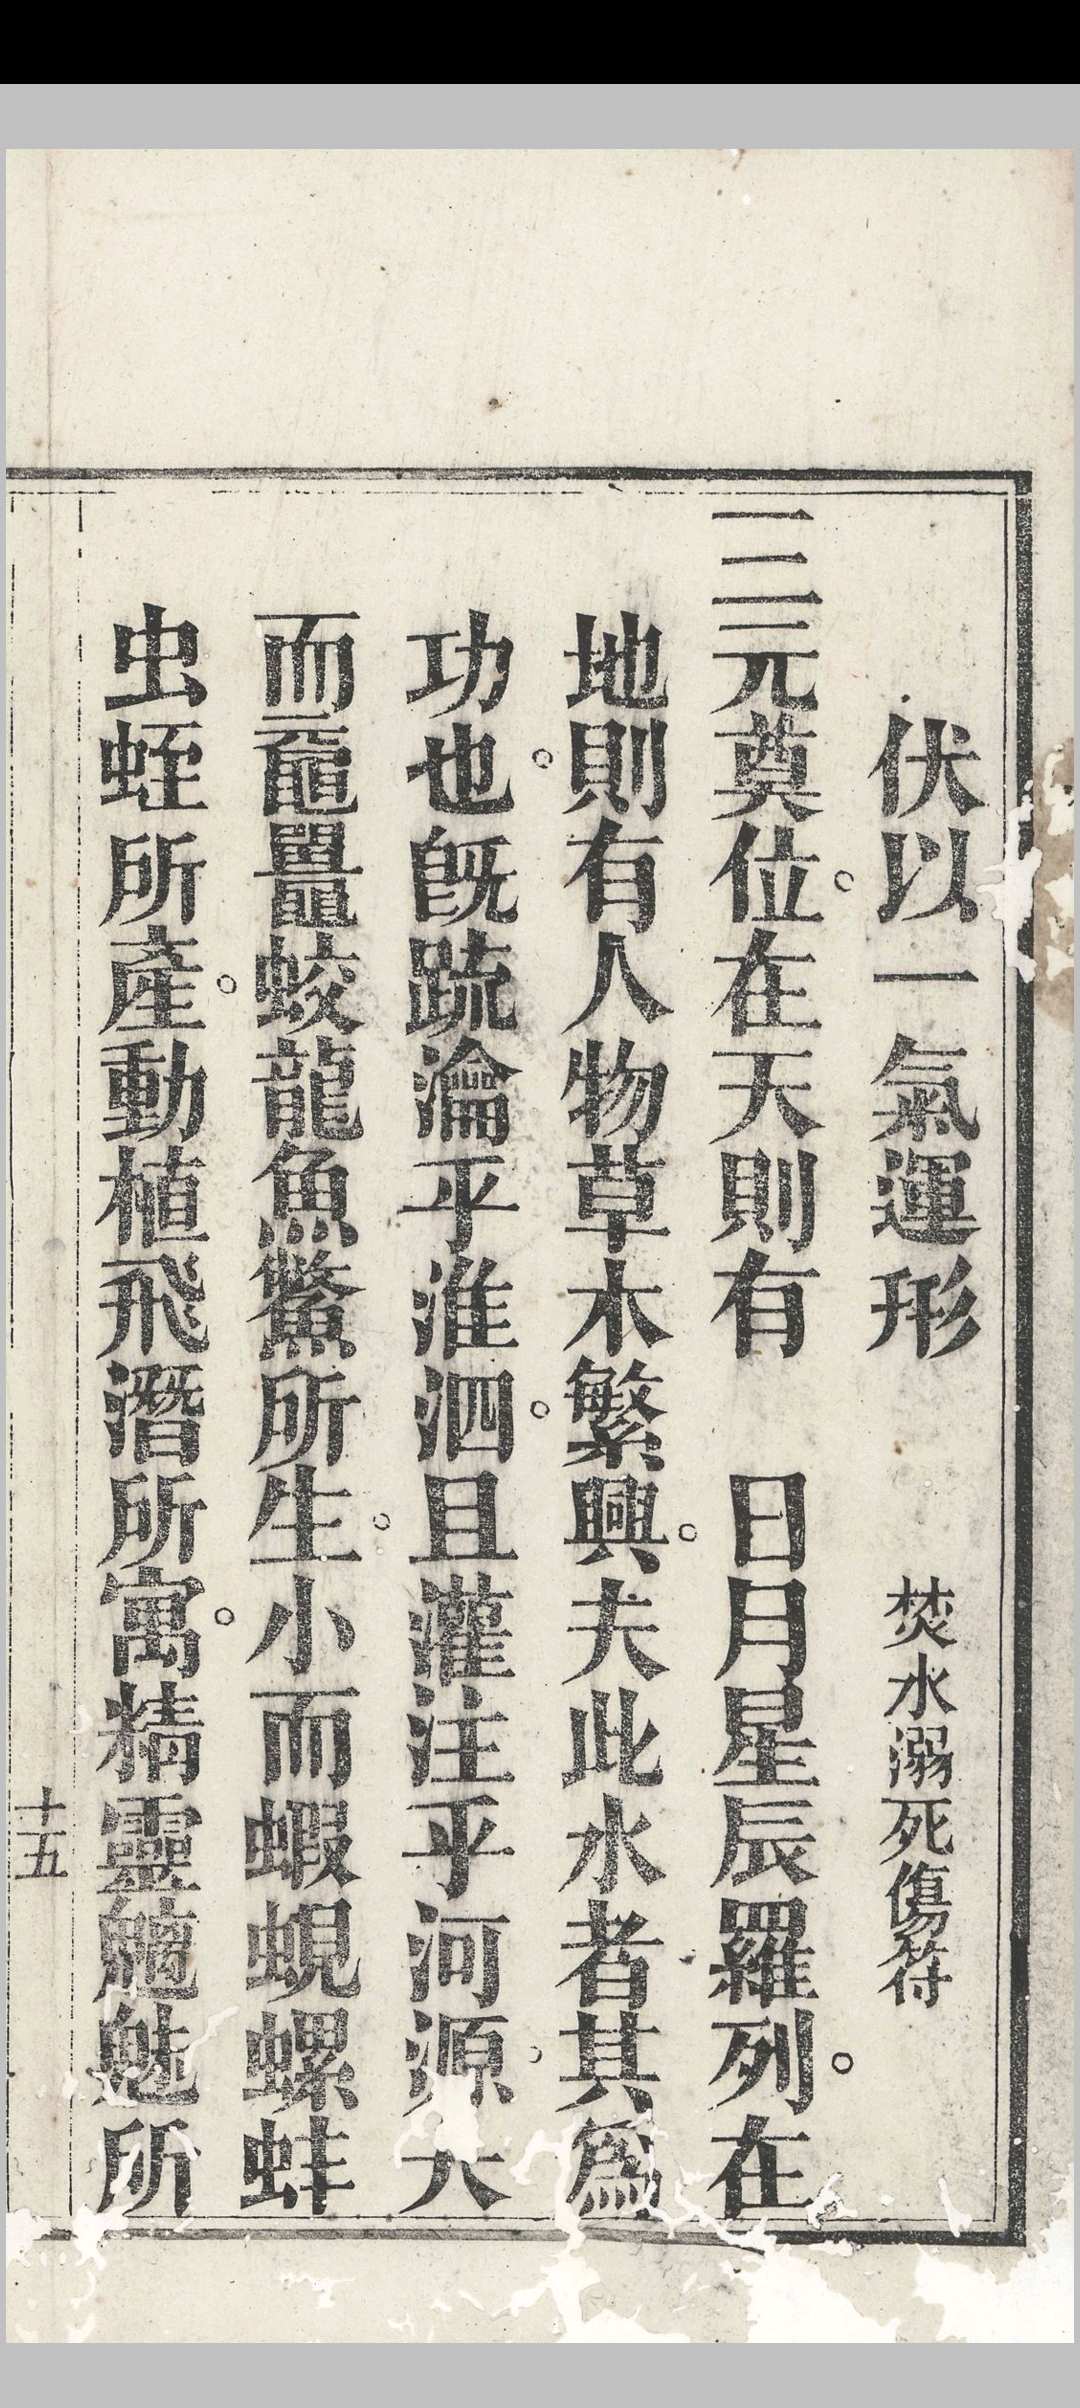 伏以一氣運形　焚水溺死傷符
三元奠位。在天則有　日月星辰羅列。在
地則有人物草木繁興。夫此水者其爲
功也。旣疏瀹乎淮泗。且灌注乎河源。大
而黿鼉蛟龍魚鱉所生。小而蝦蜆螺蚌
虫蛭所產。動植飛潛所寓。精靈魑魅所
十五